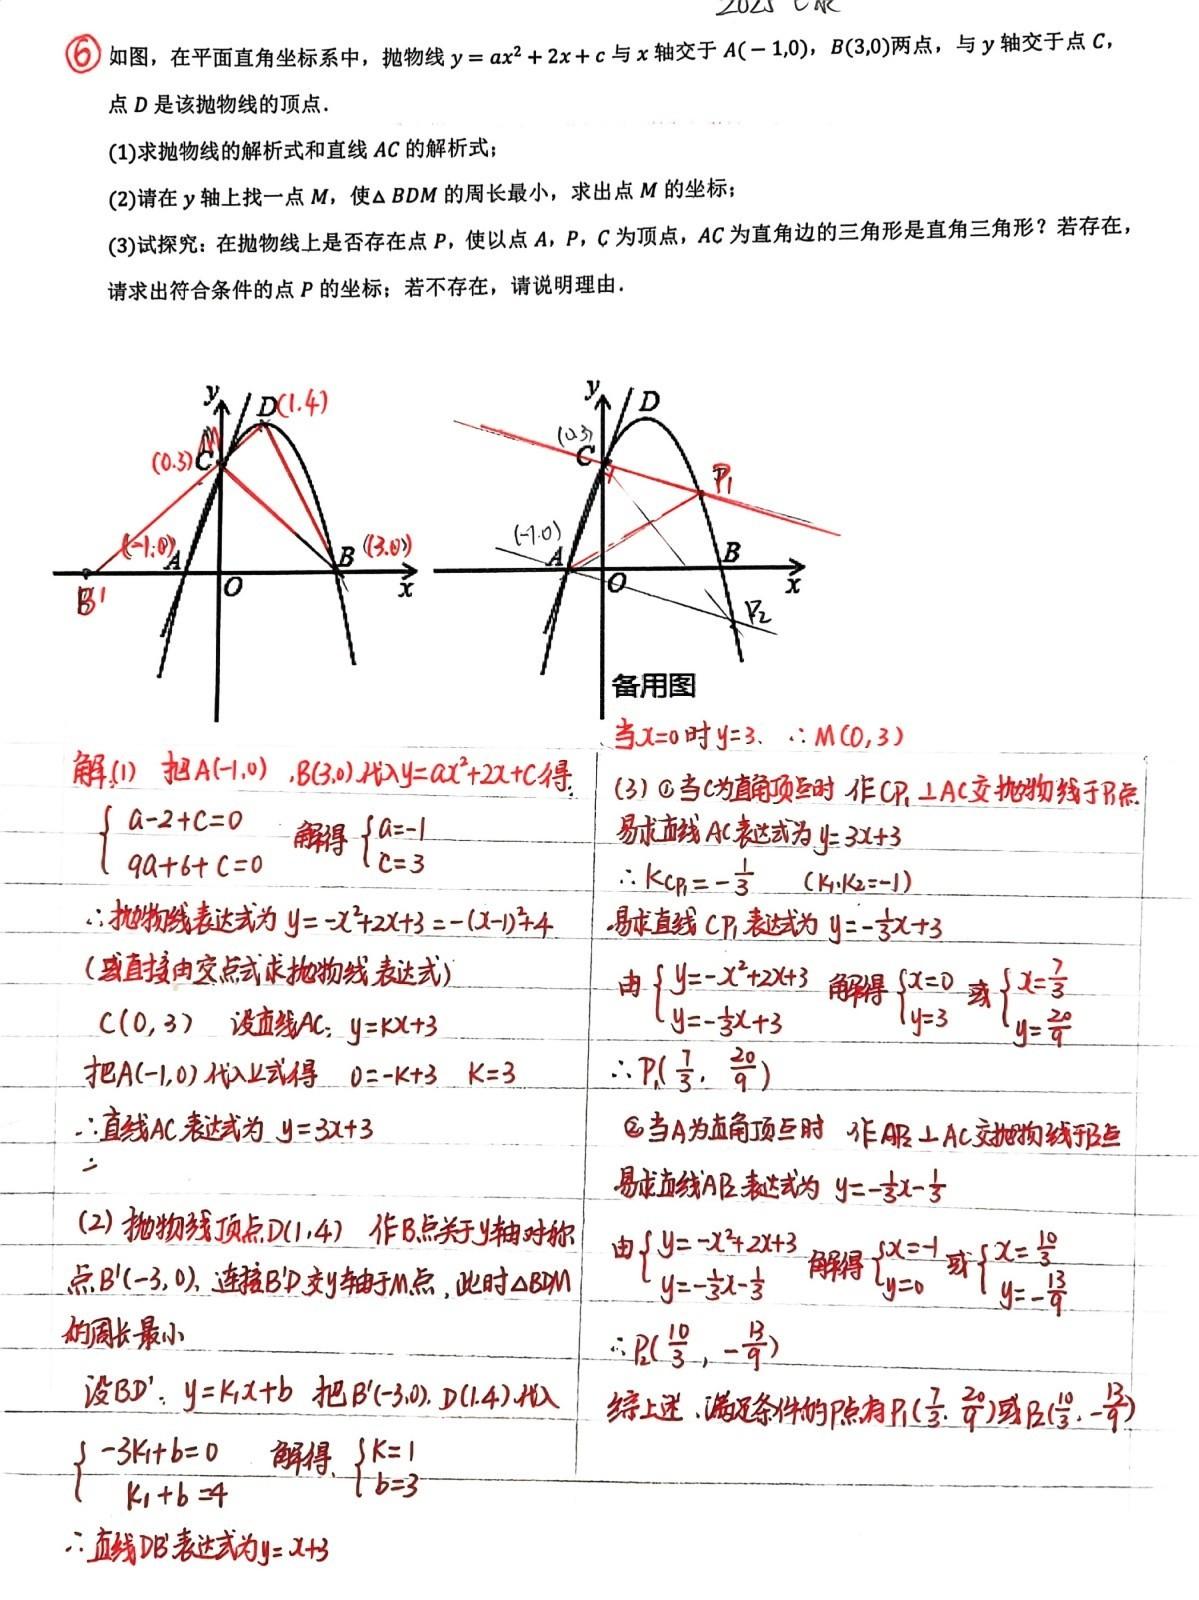 2025
⑥ 如图，在平面直角坐标系中，抛物线 y = ax² + 2x + c 与 x 轴交于 A(−1,0)，B(3,0)两点，与 y 轴交于点 C，
点 D 是该抛物线的顶点．
(1)求抛物线的解析式和直线 AC 的解析式；
(2)请在 y 轴上找一点 M，使△ BDM 的周长最小，求出点 M 的坐标；
(3)试探究：在抛物线上是否存在点 P，使以点 A，P，C 为顶点，AC 为直角边的三角形是直角三角形？若存在，
请求出符合条件的点 P 的坐标；若不存在，请说明理由．
y D(1.4)
M
(0.3) C
(-1.0) A B (3.0)
B' O x
y D
(0.3)
C P₁
(-1.0)
A B
O x
P₂
备用图
解(1) 把A(-1,0) .B(3,0).代入y=ax²+2x+C得.
{ a-2+C=0
9a+6+C=0 解得 { a=-1
C=3
∴抛物线表达式为 y=-x²+2x+3=-(x-1)²+4
(或直接由交点式求抛物线表达式)
C(0,3) 设直线AC: y=kx+3
把A(-1,0)代入上式得 0=-k+3 k=3
∴直线AC表达式为 y=3x+3
∴
(2) 抛物线顶点D(1,4) 作B点关于y轴对称
点B'(-3,0), 连接B'D交y轴于M点, 此时△BDM
的周长最小
设BD': y=k₁x+b 把B'(-3,0). D(1.4).代入
{ -3k₁+b=0
k₁+b=4 解得. { k=1
b=3
∴直线DB'表达式为y=x+3
当x=0时y=3. ∴M(0,3)
(3) ①当C为直角顶点时 作CP₁⊥AC交抛物线于P₁点
易求直线AC表达式为y=3x+3
∴kCP₁=-1/3 (k₁·k₂=-1)
易求直线CP₁表达式为 y=-1/3x+3
由 { y=-x²+2x+3
y=-1/3x+3 解得 { x=0
y=3 或 { x=7/3
y=20/9
∴P₁(7/3, 20/9)
②当A为直角顶点时 作AP₂⊥AC交抛物线于P₂点
易求直线AP₂表达式为 y=-1/3x-1/3
由 { y=-x²+2x+3
y=-1/3x-1/3 解得 { x=-1
y=0 或 { x=10/3
y=-13/9
∴P₂(10/3, -13/9)
综上述、满足条件的P点有P₁(7/3, 20/9)或P₂(10/3, -13/9)